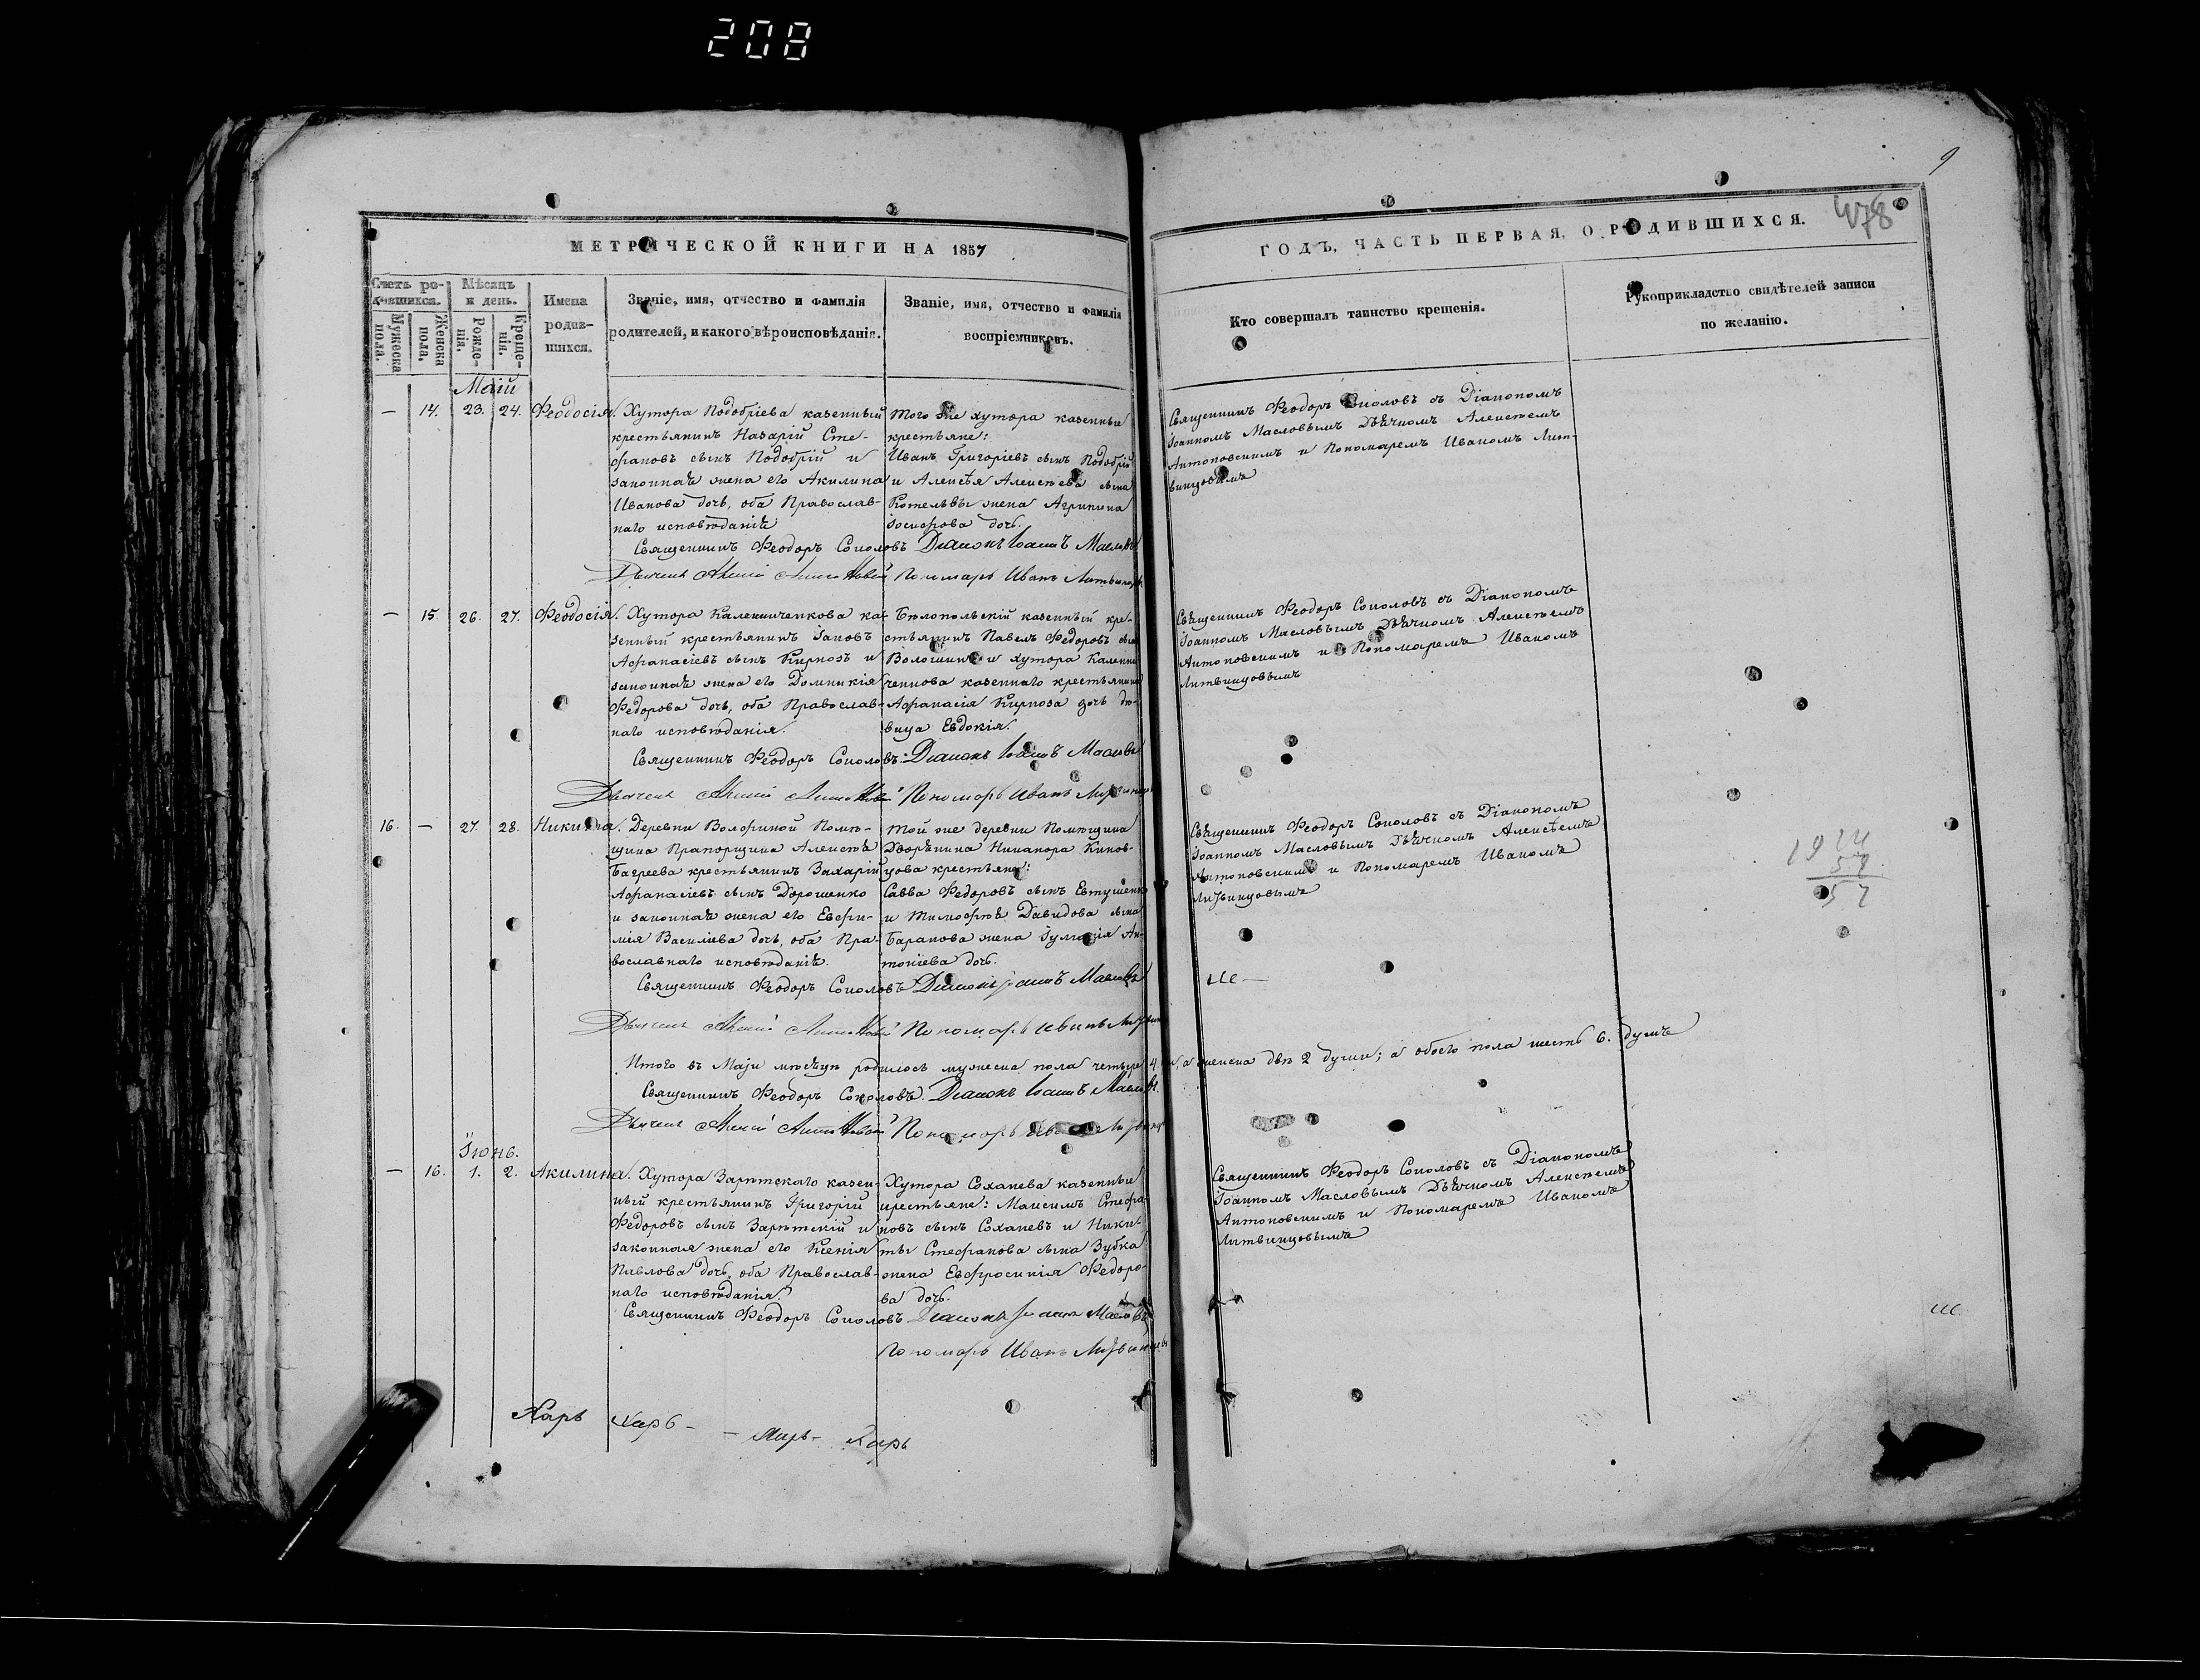 208
9
478
МЕТРИЧЕСКОЙ КНИГИ НА 1857
ГОДЪ, ЧАСТЬ ПЕРВАЯ, О РОДИВШИХСЯ.
Счетъ ро-
дившихся.
Мужеска
пола.
Женска
пола.
Мѣсяцъ
и день.
Рожде-
нія.
Креще-
нія.
Имена
родив-
шихся.
Званіе, имя, отчество и фамилія
родителей, и какого вѣроисповѣданія.
Званіе, имя, отчество и фамилія
воспріемниковъ.
Кто совершалъ таинство крещенія.
Рукоприкладство свидѣтелей записи
по желанію.
Маій
— 14. 23. 24. Феодосія.
Хутора Подобріева казенный
крестьянинъ Назарій Сте-
фановъ сынъ Подобрій и
законная жена его Акилина
Иванова дочь, оба Православ-
наго исповѣданія
Того же хутора казенные
крестьяне:
Иванъ Григоріевъ сынъ Подобрій
и Алексѣя Алексѣева сына
Котельвы жена Агрипина
Іосифова дочь.
Священникъ Феодоръ Соколовъ съ Діакономъ
Іоанномъ Масловымъ Дьячкомъ Алексѣемъ
Антоновскимъ и Пономаремъ Иваномъ Лит-
винцовымъ
Священникъ Феодоръ Соколовъ Діаконъ Іоаннъ Масловъ
Дьячекъ Пономарь Иванъ
— 15. 26. 27. Феодосія.
Хутора Калениченкова ка-
зенный крестьянинъ Іаковъ
Афанасіевъ сынъ Кирпозъ и
законная жена его Домникія
Федорова дочь, оба Православ-
наго исповѣданія.
Бѣлопольскій казенный кре-
стьянинъ Павелъ Федоровъ сынъ
Волошинъ и хутора Калени-
ченкова казеннаго крестьянина
Афанасія Кирпоза дочь дѣ-
вица Евдокія.
Священникъ Феодоръ Соколовъ съ Діакономъ
Іоанномъ Масловымъ Дьячкомъ Алексѣемъ
Антоновскимъ и Пономаремъ Иваномъ
Литвинцовымъ
Священникъ Феодоръ Соколовъ. Діаконъ Іоаннъ Масловъ
Дьячекъ Пономарь Иванъ
16. — 27. 28. Никита.
Деревни Волфиной Помѣ-
щика Прапорщика Алексѣя
Багреева крестьянинъ Захарій
Афанасіевъ сынъ Дорошенко
и законная жена его Евфи-
мія Василіева дочь, оба Пра-
вославнаго исповѣданія.
Той же деревни Помѣщика
Дворянина Никанора
крестьяне:
Савва Федоровъ сынъ Евтушенко
и Тимофѣя Давидова сына
Баранова жена Ан-
тоніева дочь.
Священникъ Феодоръ Соколовъ съ Діакономъ
Іоанномъ Масловымъ Дьячкомъ Алексѣемъ
Антоновскимъ и Пономаремъ Иваномъ
Литвинцовымъ
1914
57
57
Священникъ Феодоръ Соколовъ Діаконъ Іоаннъ Масловъ
Дьячекъ Пономарь Иванъ
Итого въ Маіи мѣсяцѣ родилось мужеска пола четыре 4. а женска двѣ 2 души; а обоего пола шесть 6. душъ
Священникъ Феодоръ Соколовъ. Діаконъ Іоаннъ Масловъ.
Дьячекъ Пономарь
Іюнь.
— 16. 1. 2. Акилина.
Хутора Зарѣтскаго казен-
ный крестьянинъ Григорій
Федоровъ сынъ Зарѣтскій и
законная жена его Ксенія
Павлова дочь, оба Православ-
наго исповѣданія.
Хутора Соханева казенные
крестьяне: Максимъ Стефа-
новъ сынъ Соханевъ и Ники-
ты Стефанова сына Зубка
жена Евфросинія Федоро-
ва дочь.
Священникъ Феодоръ Соколовъ съ Діакономъ
Іоанномъ Масловымъ Дьячкомъ Алексѣемъ
Антоновскимъ и Пономаремъ Иваномъ
Литвинцовымъ
Священникъ Феодоръ Соколовъ Діаконъ Іоаннъ Масловъ
Пономарь Иванъ
Харь Харь - - Харь - Харь